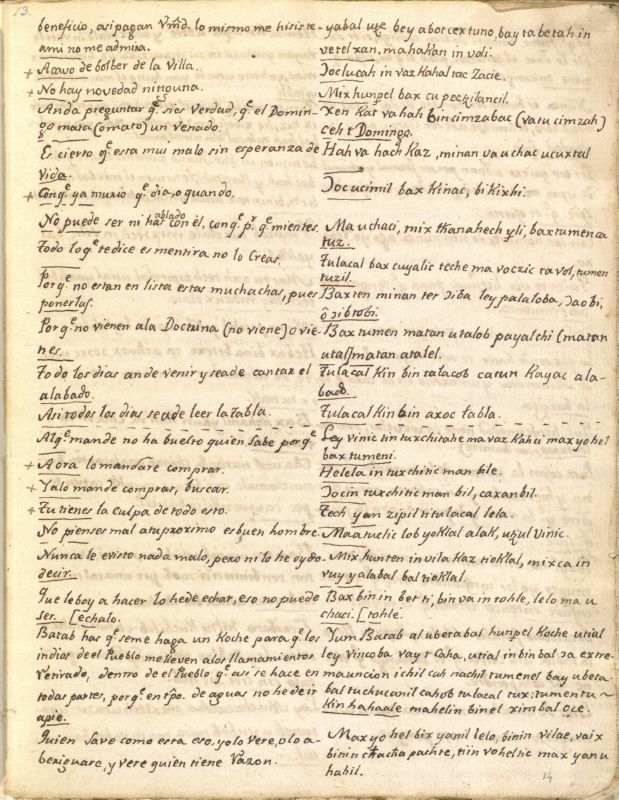 13.
beneficio, asi pagan Vmd. lo mismo me hisiste
ami no me admira.
+ Acavo de bolber de la Villa.
+ No hay novedad ninguna.
Anda preguntar qe. si es Verdad, qe. el Domin-
go mata (o mato) un venado.
Es cierto qe. esta mui malo sin esperanza de
Vida.
+ Conqe. ya murio qe. dia, o quando.
No puede ser ni has ablado con el, conqe. pr. qe. mientes.
Todo lo qe. te dice es mentira no lo Creas.
Porqe. no estan en lista estas muchachas, pues
ponerlas.
Porqe. no vienen ala Doctrina (no viene) o vie-
nes.
Todo los dias an de venir y se a de cantar el
alabado.
Asi todos los dias se a de leer la tabla.
Al qe. mande no ha buelto quien sabe por qe.
+ Aora lo mandare comprar.
+ Ya lo mande comprar, buscar.
+ Tu tienes la culpa de todo esto.
No pienses mal atu proximo es buen hombre.
Nunca le e visto nada malo, pero ni lo he oydo
decir.
Que le boy a hacer lo he de echar, eso no puede
ser. [echalo.
Batab has qe. se me haga un Koche para qe. los
indios de el Pueblo me lleven alos llamamientos
Venirado, dentro de el Pueblo qe. asi se hace en
todas partes, porqe. en tpo. de aguas no he de ir
apie.
Quien save como esta eso, yo lo vere, o lo a-
beriguare, y vere quien tiene Razon.
yabal uɔe bey abolcex tuno, bay ta betah in
vetel xan, mahakan in voli.
Joc lucah in vaz Kahal tac Zacie.
Mix hunpel bax cu peczilancil.
Xen Kat va hah bin cimzabac (va tu cimzah)
ceh t Domingo.
Hah va hach Kaz, minan va uchac ucuxtal
Joc ucimil bax Kinac, bikixhi.
Ma uchaci, mix tkanahech yli, bax tumen ca
tuz.
Tulacal bax cuyalic teche ma voczic ta vol, tumen
tuzil.
Baxten minan ter ɔiba ley palaloba, ɔaobi,
ô ɔibtobi.
Bax tumen matan utalob payalchi (matan
utal) matan atalel.
Tulacal Kin bin talacob catun Kayac ala-
bado.
Tulacal Kin bin axoc tabla.
Ley vinic tin tuxchitahe ma vaz Kahci max yohel
bax tumeni.
Helela in tuxchitic man bile.
Jocin tuxchitic man bil, caxanbil.
Tech yan zipil ti tulacal lela.
Ma a tuclic lob yoklal a lak, uɔul vinic.
Mix hunten in vila Kaz tioklal, mix ca in
vuy yalabal bal tioklal.
Bax bin in bet ti, bin va in tohle, lelo ma u
chaci. [tohle.
Yum Batab al ubetabal hunpel Koche utial
ley vincoba vay t Caha, utial in binbal ɔa extre-
mauncion ichil cah nachil tumenel bay ubeta
bal tuchucanil cahob tulacal tux: tumen tu ~
Kin hahaale mahelin binel ximbal oce.
Max yohel bix yanil lelo, binin vilae, vaix
binin tkactha pachte, tiin voheltic max yanu
hahil.
14